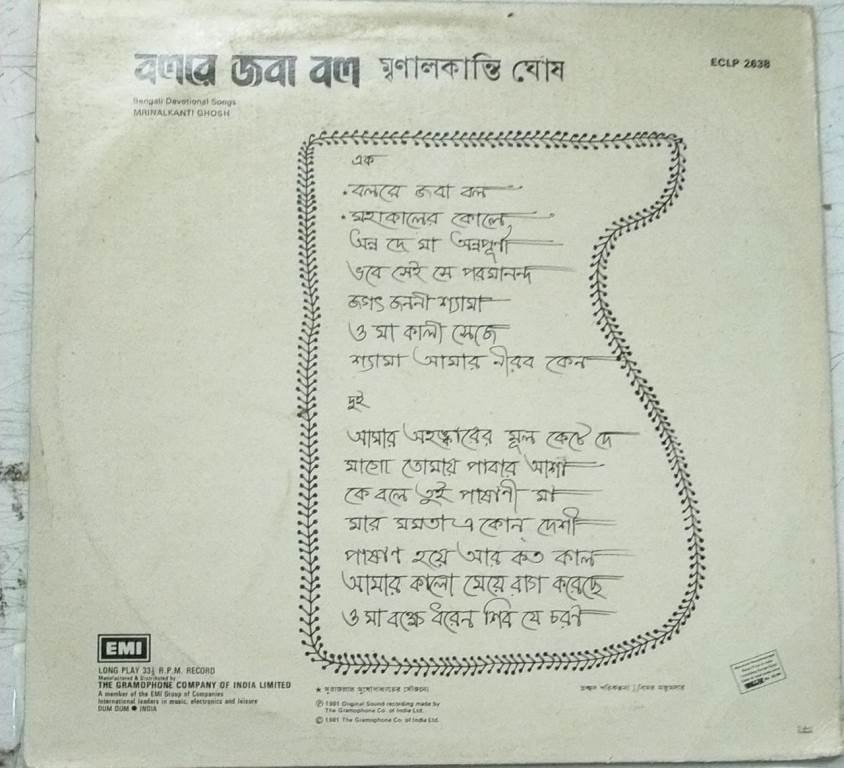 বলরে জবা বল মৃণালকান্তি ঘোষ
ECLP 2638
Bengali Devotional Songs
MRINALKANTI GHOSH
এক
বলরে জবা বল
মহাকালের কোলে
অন্ন দে মা অন্নপূর্ণা
ভবে সেই সে পরমানন্দ
জগৎ জননী শ্যামা
ও মা কালী সেজে
শ্যামা আমার নীরব কেন
দুই
আমার অহঙ্কারের মূল কেটে দে
মাগো তোমায় পাবার আশা
কে বলে তুই পাষাণী মা
মার মমতা এ কোন্ দেশী
পাষাণ হয়ে আর কত কাল
আমার কালো মেয়ে রাগ করেছে
ও মা বক্ষে ধরেন শিব যে চরণ
EMI
LONG PLAY 33⅓ R.P.M. RECORD
Manufactured & Distributed by
THE GRAMOPHONE COMPANY OF INDIA LIMITED
A member of the EMI Group of Companies
International leaders in music, electronics and leisure
DUM DUM ● INDIA
★ মুখোপাধ্যায়ের সৌজন্যে
Ⓟ 1981 Original Sound recording made by
The Gramophone Co. of India Ltd.
© 1981 The Gramophone Co. of India Ltd.
প্রচ্ছদ পরিকল্পনা : বিমল মজুমদার